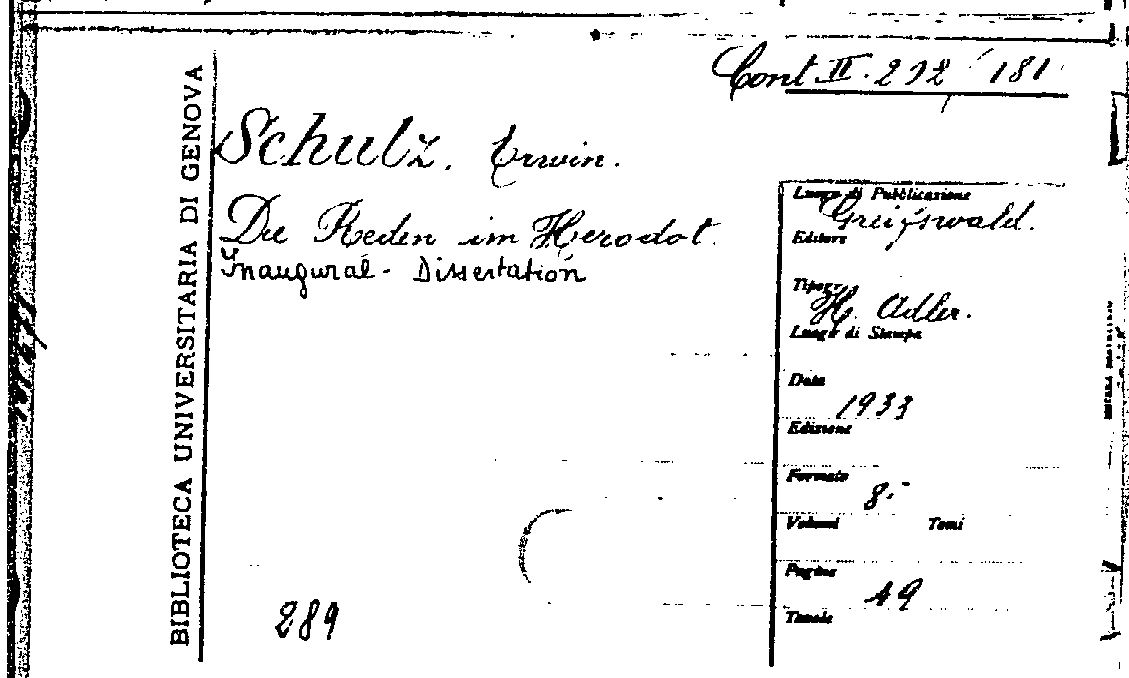 Cont. II. 292 / 181
BIBLIOTECA UNIVERSITARIA DI GENOVA
Schulz. Erwin.
Die Reden im Herodot.
Inaugural - Dissertation
Luogo di Pubblicazione
Greifswald.
Editore
Tipogr.
H. Adler.
Luogo di Stampa
Data
1933
Edizione
Formato
8.-
Volumi Tomi
Pagine
49
Tavole
289